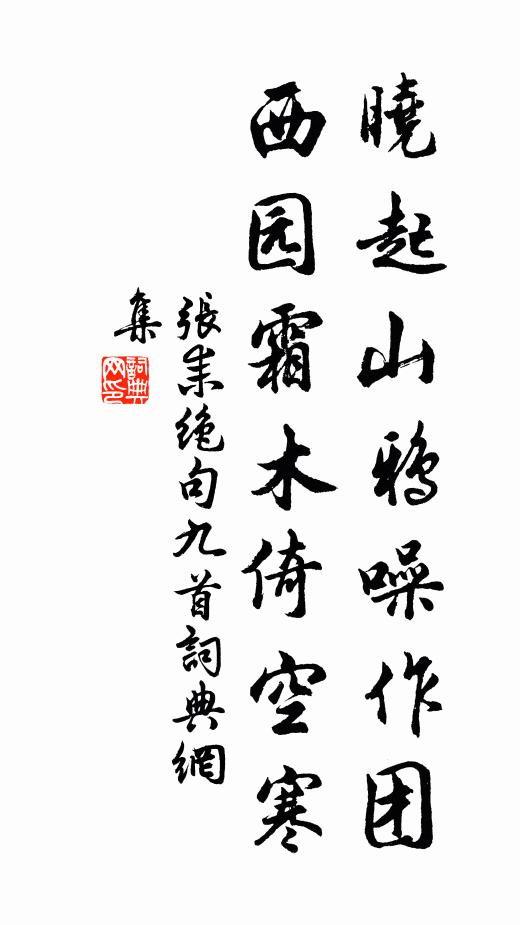 曉起山鴉噪作团
西园霜木倚空寒
張耒绝句九首詞典網
集
詞典
网印